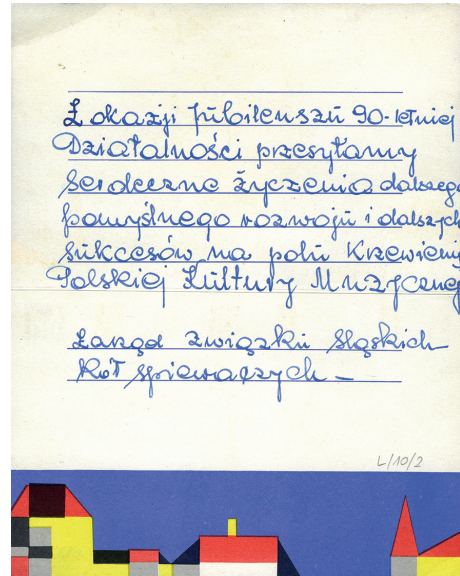 Z okazji Jubileuszu 90-letniej
Działalności przesyłamy
serdeczne życzenia dalszego
pomyślnego rozwoju i dalszych
sukcesów na polu Krzewienia
Polskiej Kultury Muzycznej
Zarząd Związku Śląskich
Kół śpiewaczych –
L/10/2